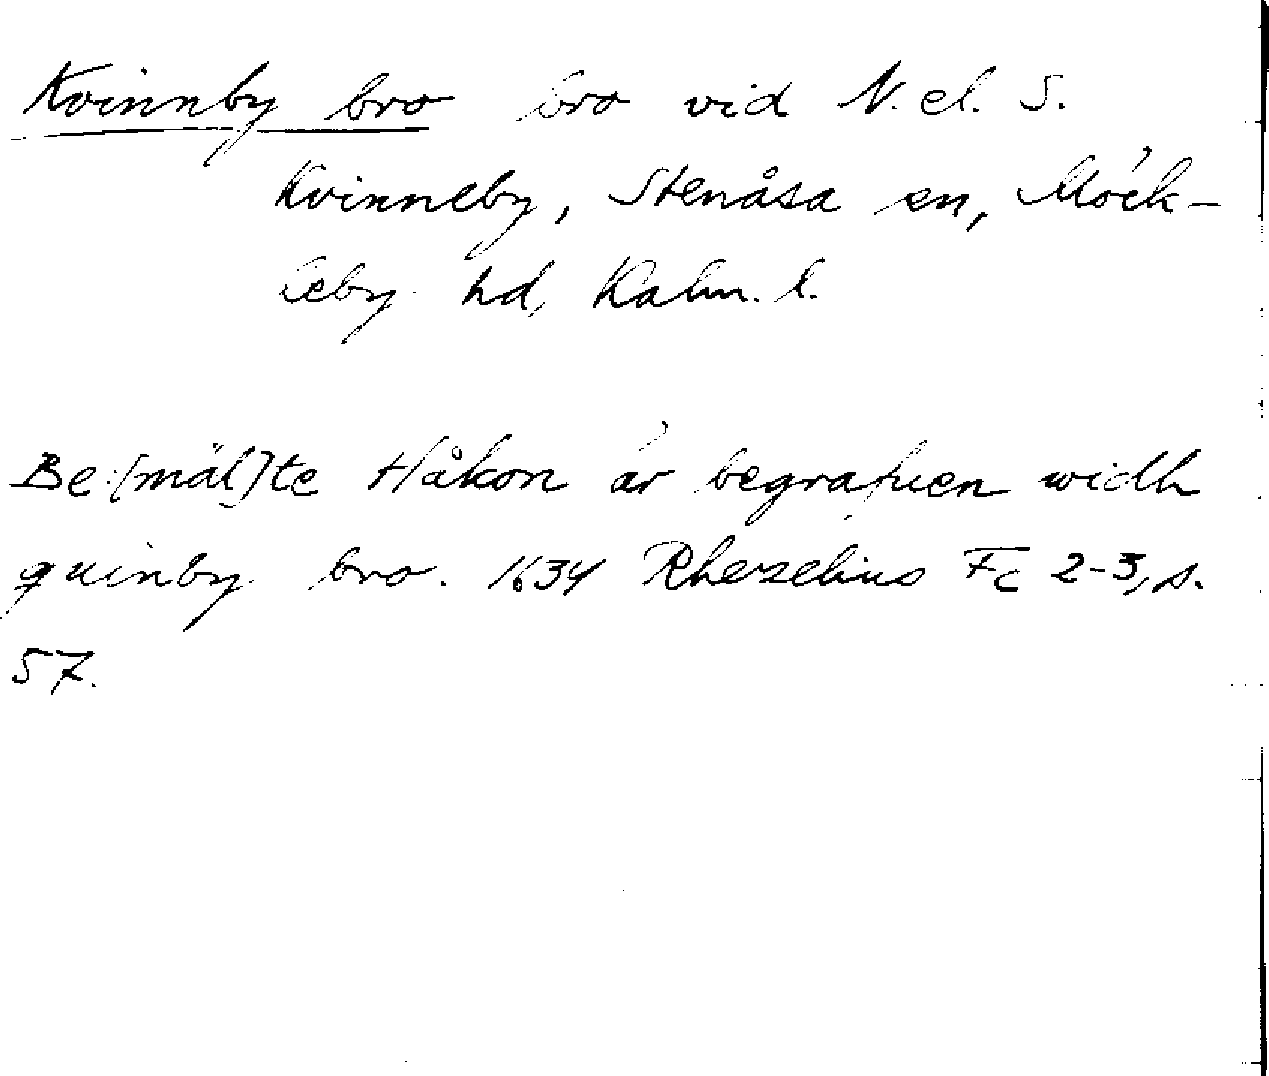 Kvinnby bro bro vid N. el. S.
Kvinneby, Stenåsa sn, Möck-
leby hd, Kalm. l.
Be[mäl]te Håkon är begrafuen widh
quinby bro. 1634 Rhezelius Fc 2-3, s.
57.